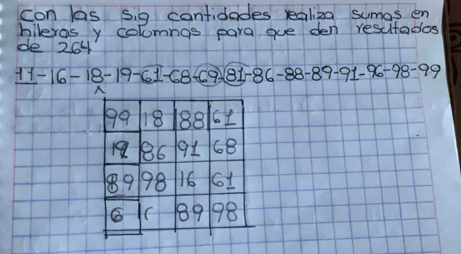 con las sig cantidades realiza sumas en
hileras y columnas para que den resultados
de 264
11-16-18-19-61-68-69-81-86-88-89-91-96-98-99
99 18 88 61
86 91 68
89 98 16 61
6 89 98